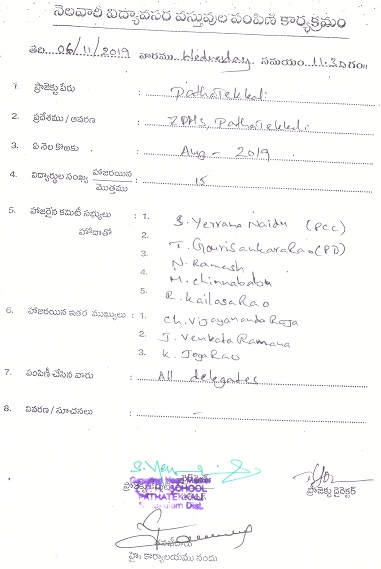 నెలవారీ విద్యావసర వస్తువుల పంపిణీ కార్యక్రమం
తేది. 06/11/2019 వారము Wednesday. సమయం 11:30 గం॥
1. ప్రాజెక్టు పేరు : PathaTekkali
2. ప్రదేశము / ఆవరణ : ZPHS, PathaTekkali.
3. ఏ నెల కొఱకు : Aug - 2019
4. విద్యార్థుల సంఖ్య హాజరయిన / మొత్తము : 15
5. హాజరైన కమిటీ సభ్యులు : 1. S. Yerrama Naidu (PCC)
హోదాతో 2. T. GouriSankaraRao (PD)
3. N. Ramesh
4. M. Chinnababu
5. R. KailasaRao
6. హాజరయిన ఇతర ముఖ్యులు : 1. Ch. Vijayananda Raja
2. J. Venkata Ramana
3. K. JogaRao
7. పంపిణీ చేసిన వారు : All delegates
8. వివరణ / సూచనలు : -
ప్రాజెక్టు డైరెక్టర్
Head Master
SCHOOL
PATHATEKKALI
Dist.
హై॥ కార్యాలయము నందు